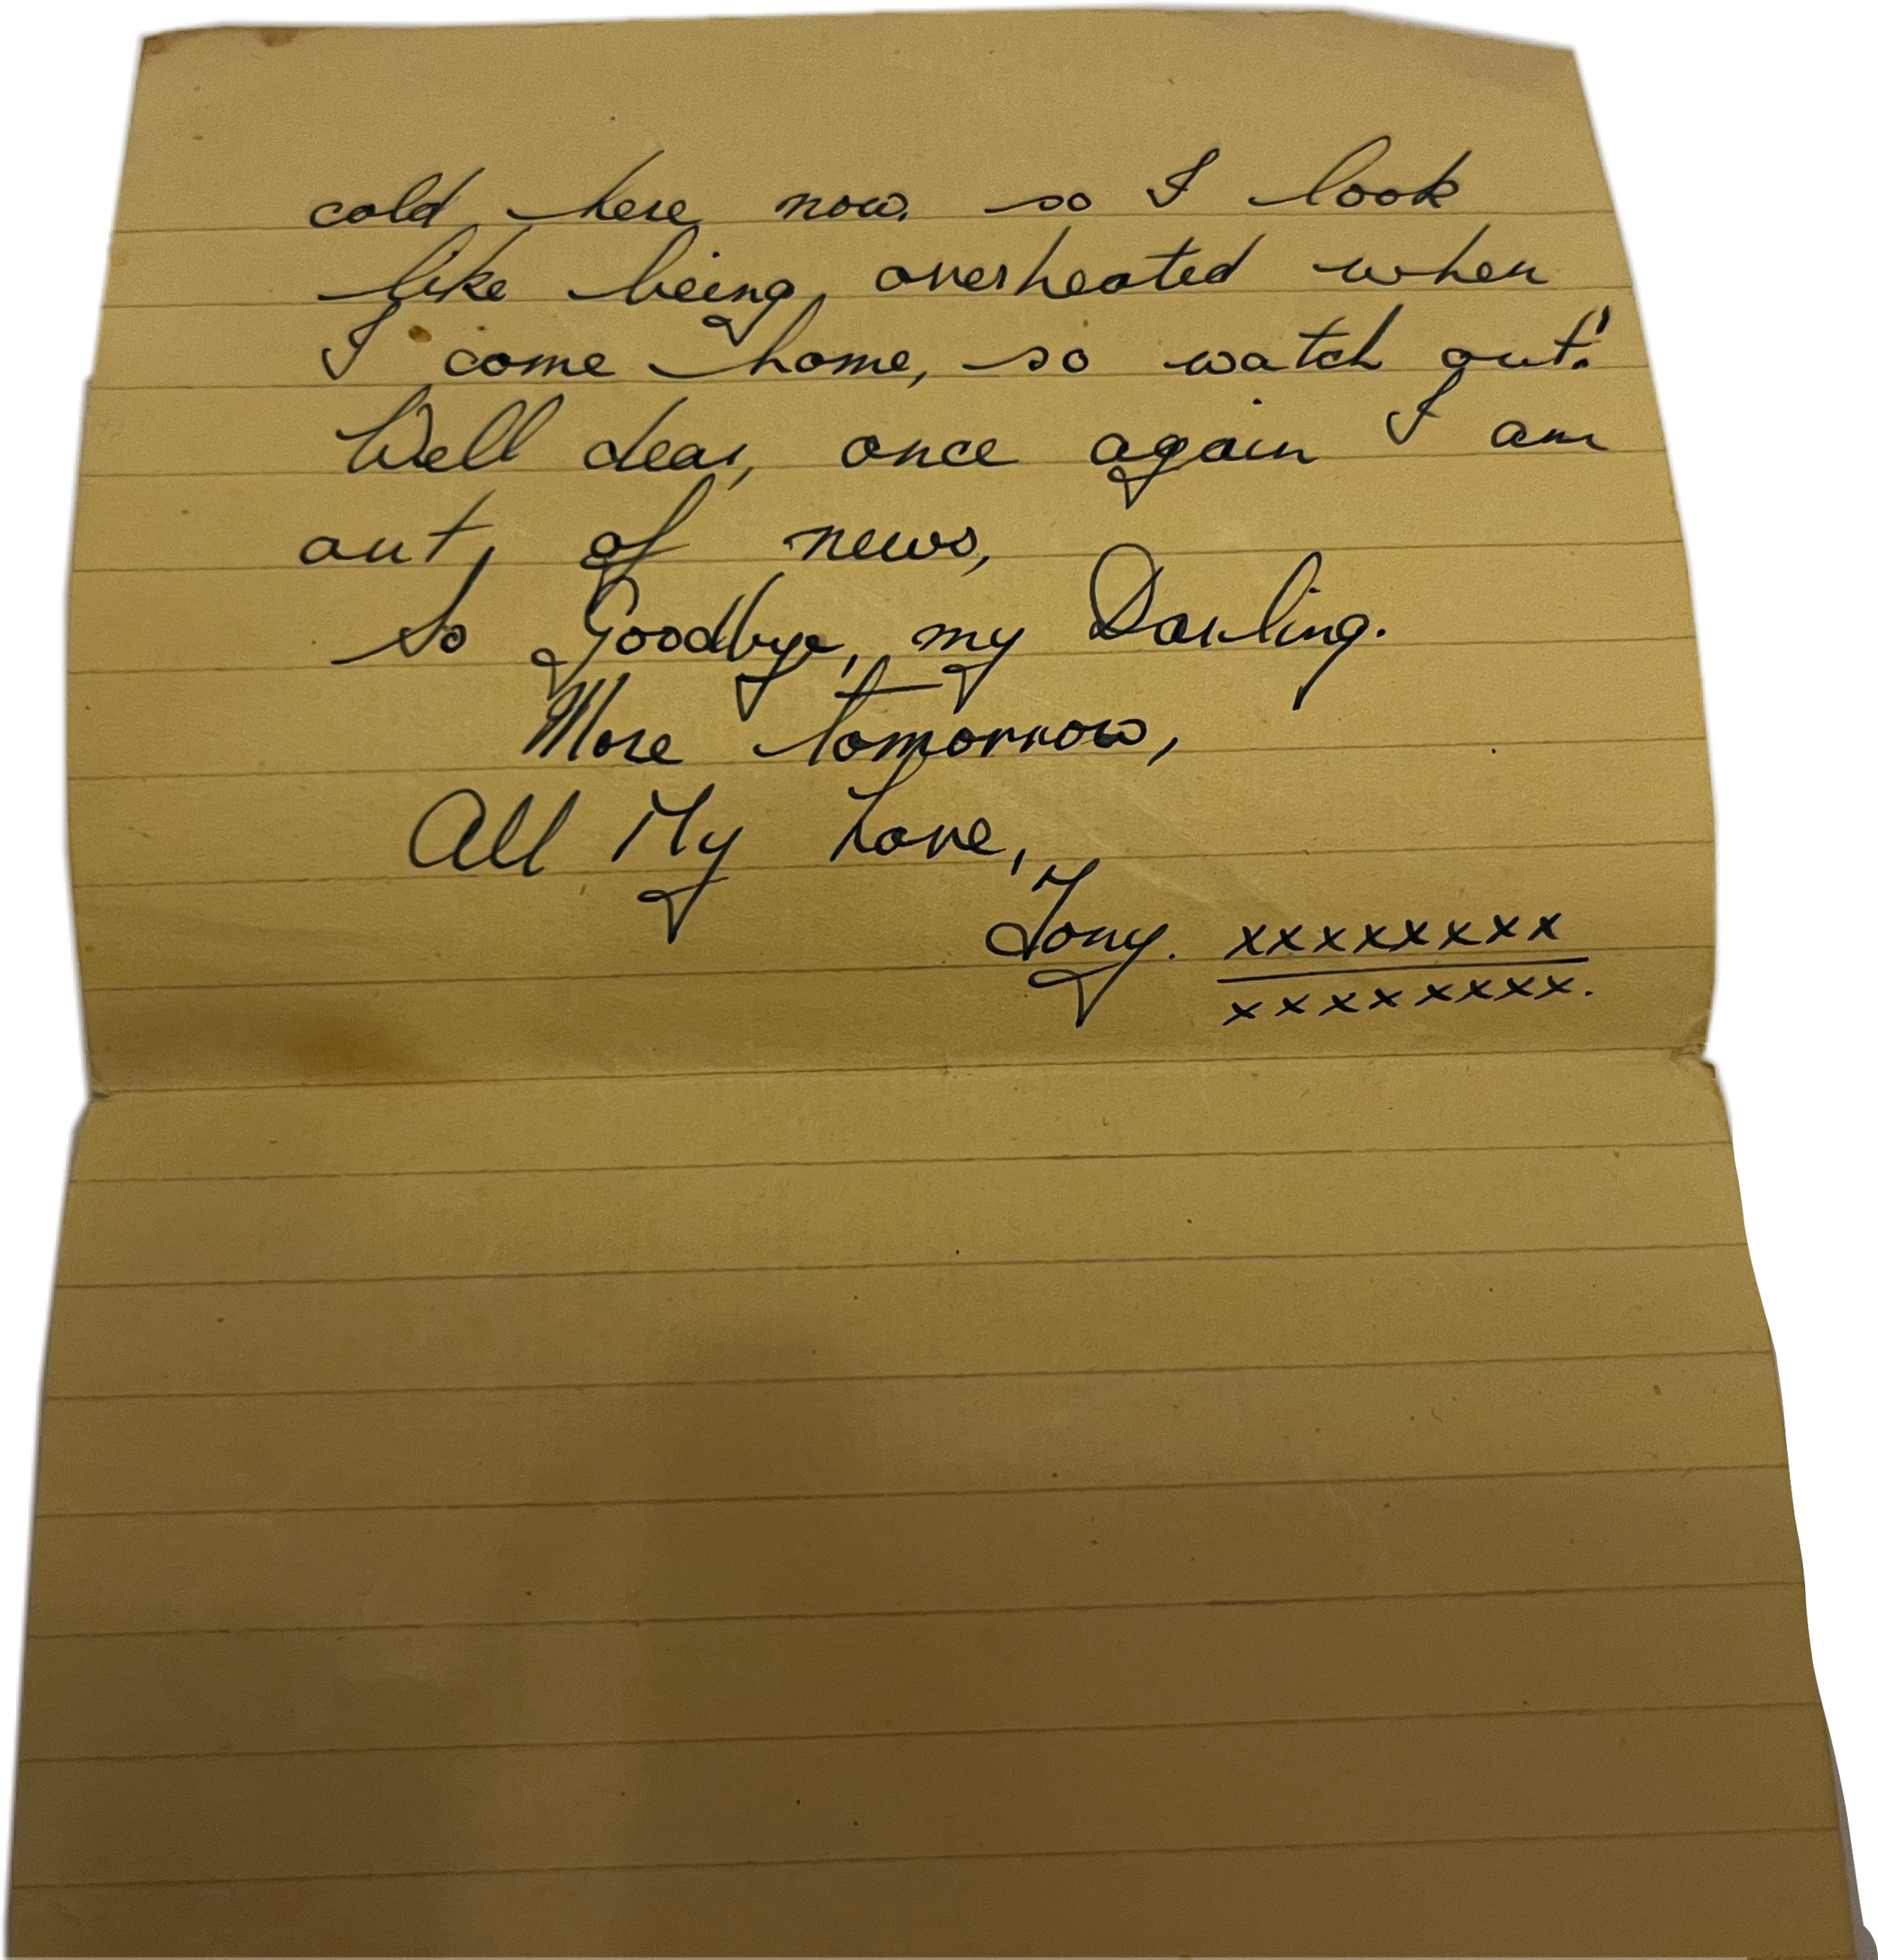 cold here now. so I look
like being overheated when
I come home, so watch out!
Well dear, once again I am
out of news,
So Goodbye, my Darling.
More tomorrow,
All My Love,
Tony. xxxxxxxxx
xxxxxxxxx.